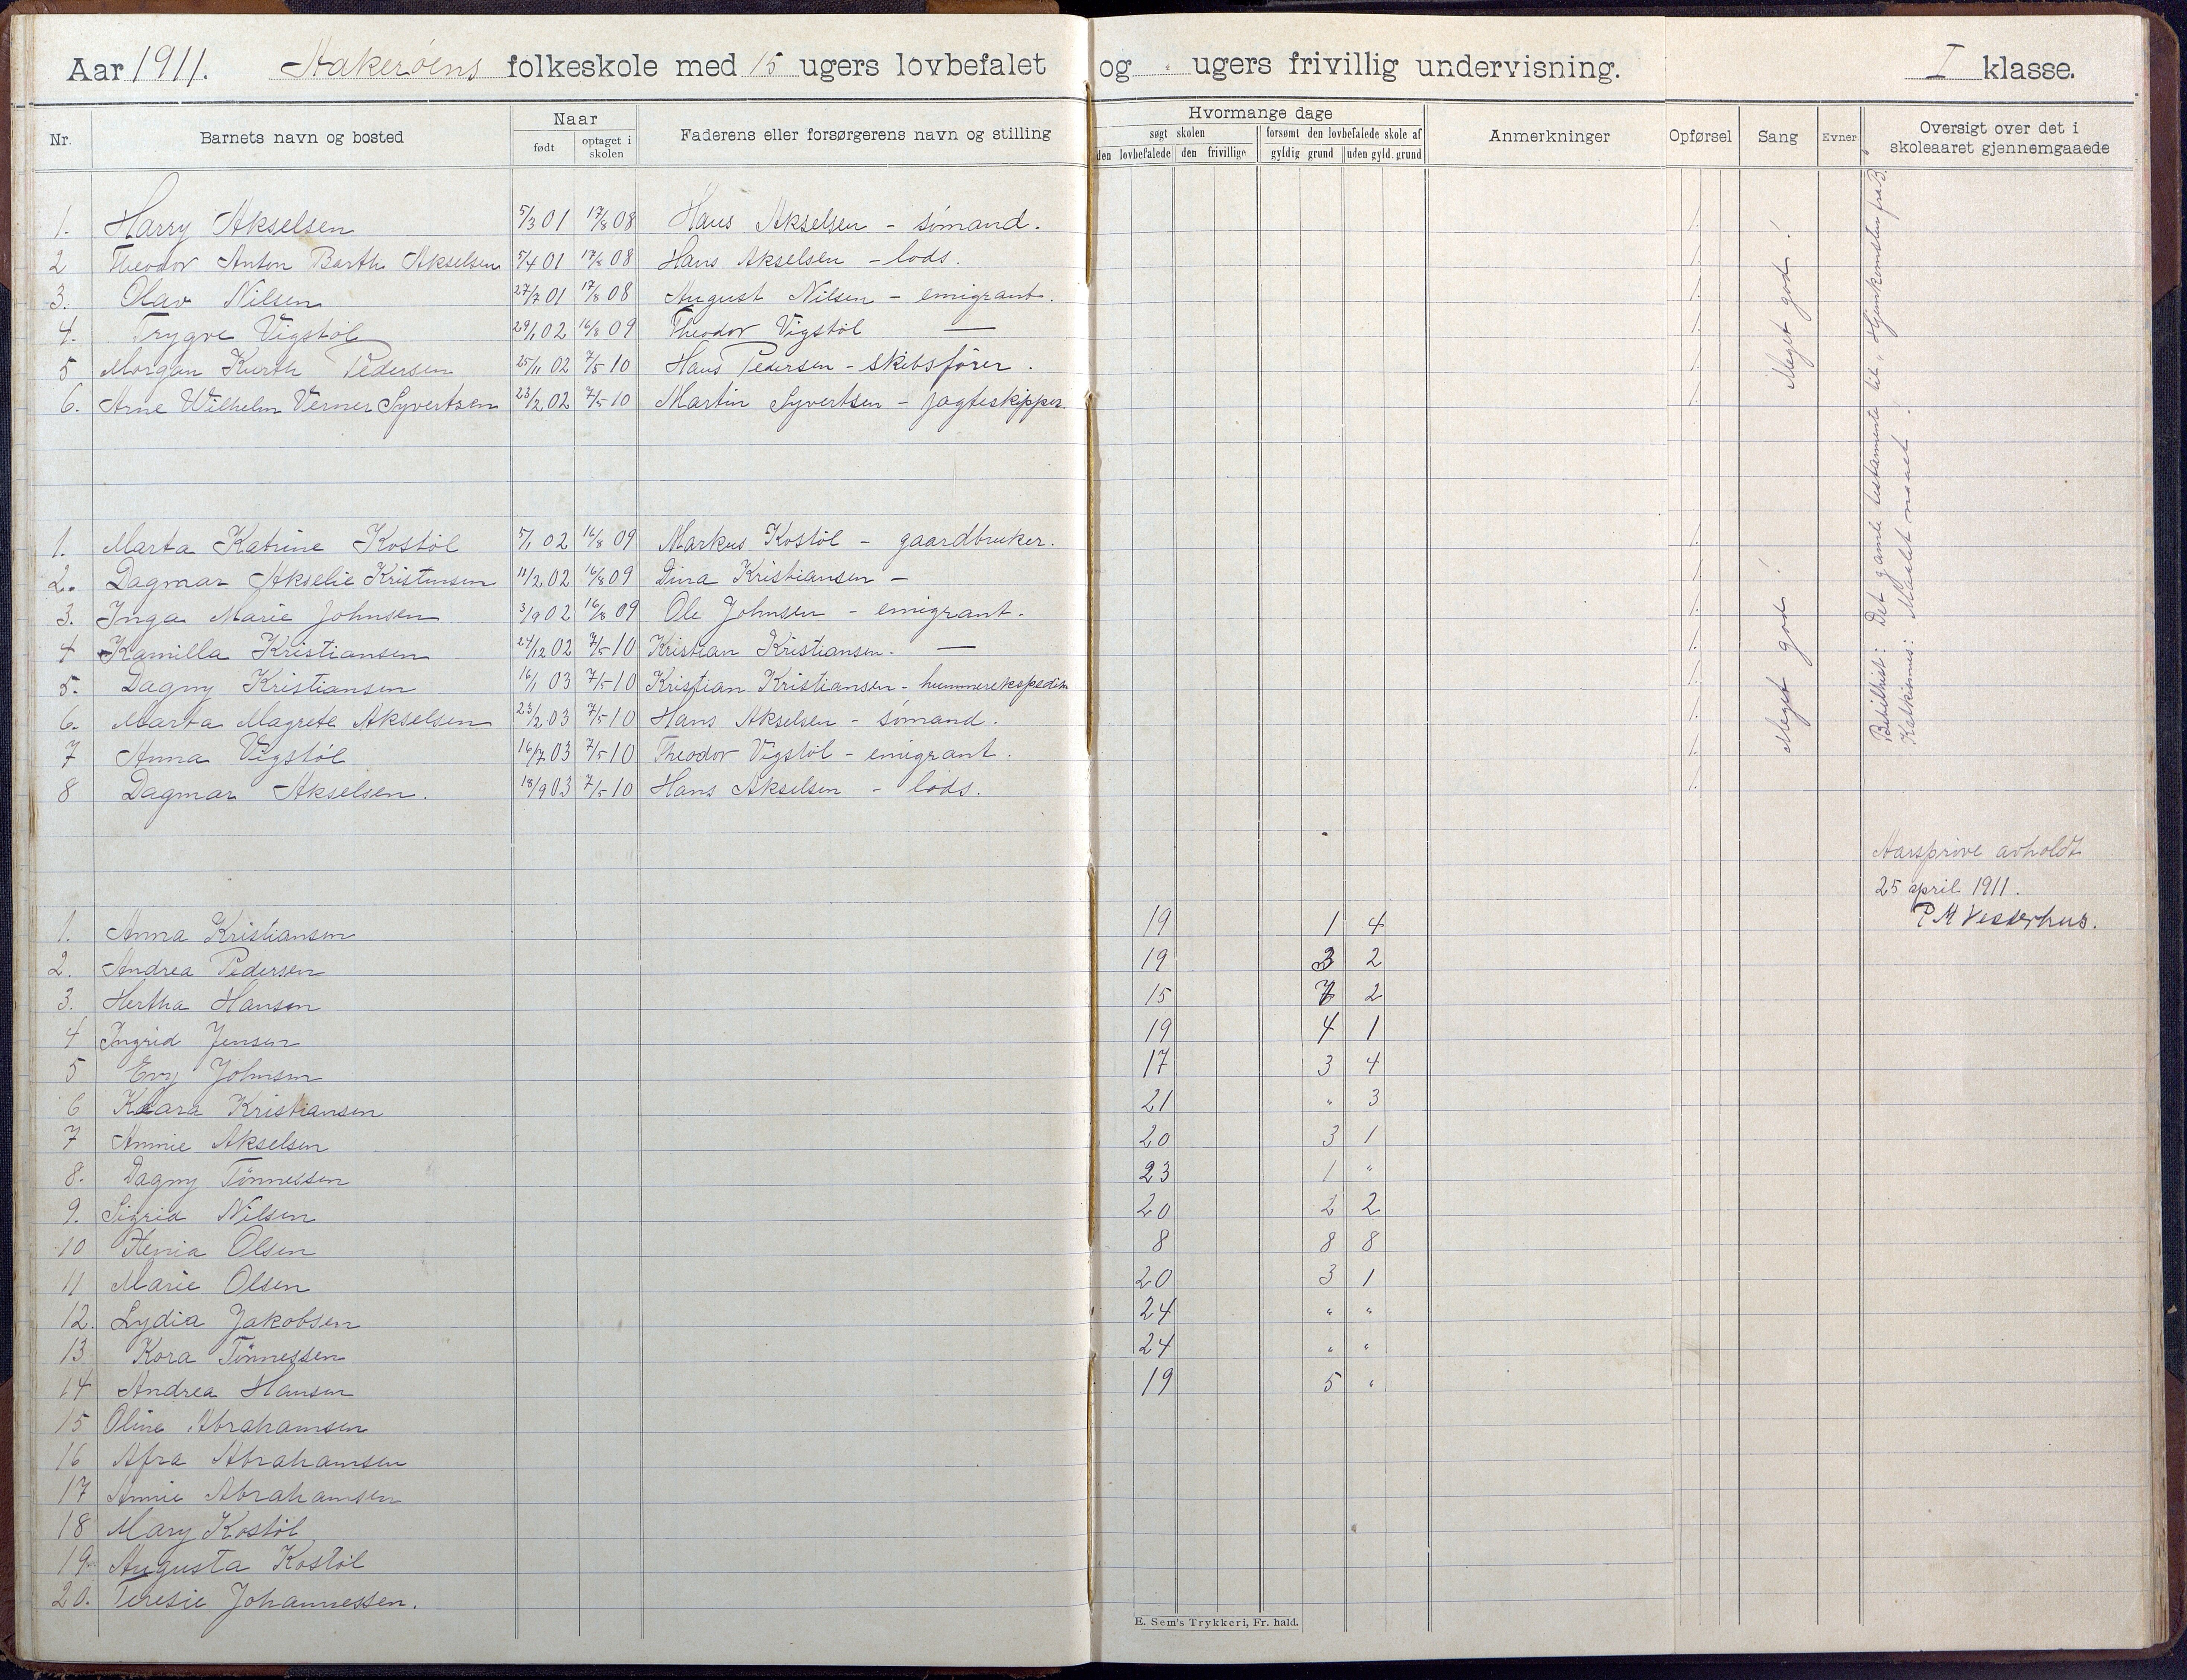 Aar 1911. Hakerøens folkeskole med 15 ugers lovbefalet og ugers frivillig undervisning. I klasse.
Nr. Barnets navn og bosted Naar født optaget i skolen Faderens eller forsørgerens navn og stilling Hvormange dage søgt skolen den lovbefalede den frivillige forsømt den lovbefalede skole af gyldig grund uden gyld. grund Anmerkninger Opførsel Sang Evner Oversigt over det i skoleaaret gjennemgaaede
1. Harry Akselsen 5/3 01 17/8 08 Hans Akselsen - sømand. 1.
2 Theodor Anton Barth Akselsen 5/4 01 17/8 08 Hans Akselsen - lods. 1.
3. Olav Nilsen 27/7 01 17/8 08 August Nilsen - emigrant. 1.
4. Trygve Vigstøl 29/1 02 16/8 09 Theodor Vigstøl — 1.
5 Morgan Kurth Pedersen 25/11 02 7/5 10 Hans Pedersen - skibsfører. 1.
6. Arne Wilhelm Verner Syvertsen 23/2 02 7/5 10 Martin Syvertsen - jagteskipper. 1.
Meget god!
1. Marta Katrine Kostøl 5/1 02 16/8 09 Markus Kostøl - gaardbruker. 1.
2. Dagmar Akselie Kristensen 11/2 02 16/8 09 Dina Kristiansen - 1.
3. Inga Marie Johnsen 3/9 02 16/8 09 Ole Johnsen - emigrant. 1.
4 Kamilla Kristiansen 24/12 02 7/5 10 Kristian Kristiansen. — 1.
5. Dagny Kristiansen 16/1 03 7/5 10 Kristian Kristiansen - hummerekspeditør 1.
6. Marta Magrete Akselsen 23/2 03 7/5 10 Hans Akselsen - sømand. 1.
7 Anna Vigstøl 16/7 03 7/5 10 Theodor Vigstøl - emigrant. 1.
8 Dagmar Akselsen. 18/9 03 7/5 10 Hans Akselsen - lods. 1.
Meget god!
Bibelhist: Det gamle testamente til "Hjemkomsten fra B.
Katkismus: Maalet naaet.
Aarsprøve avholdt
25 april 1911.
P M Vesterhus.
1. Anna Kristiansen 19 1 4
2. Andrea Pedersen 19 3 2
3. Hertha Hansen 15 7 2
4 Ingrid Jensen 19 4 1
5 Evy Johnsen 17 3 4
6 Klara Kristiansen 21 " 3
7 Annie Akselsen 20 3 1
8. Dagny Tønnessen 23 1 "
9. Sigrid Nilsen 20 2 2
10 Olsen 8 8 8
11 Marie Olsen 20 3 1
12. Lydia Jakobsen 24 " "
13 Kora Tønnessen 24 " "
14 Andrea Hansen 19 5 "
15 Oline Abrahamsen
16 Afra Abrahamsen
17 Annie Abrahamsen
18 Mary Kostøl
19. Augusta Kostøl
20. Teresie Johannessen.
E. Sem's Trykkeri, Fr. hald.